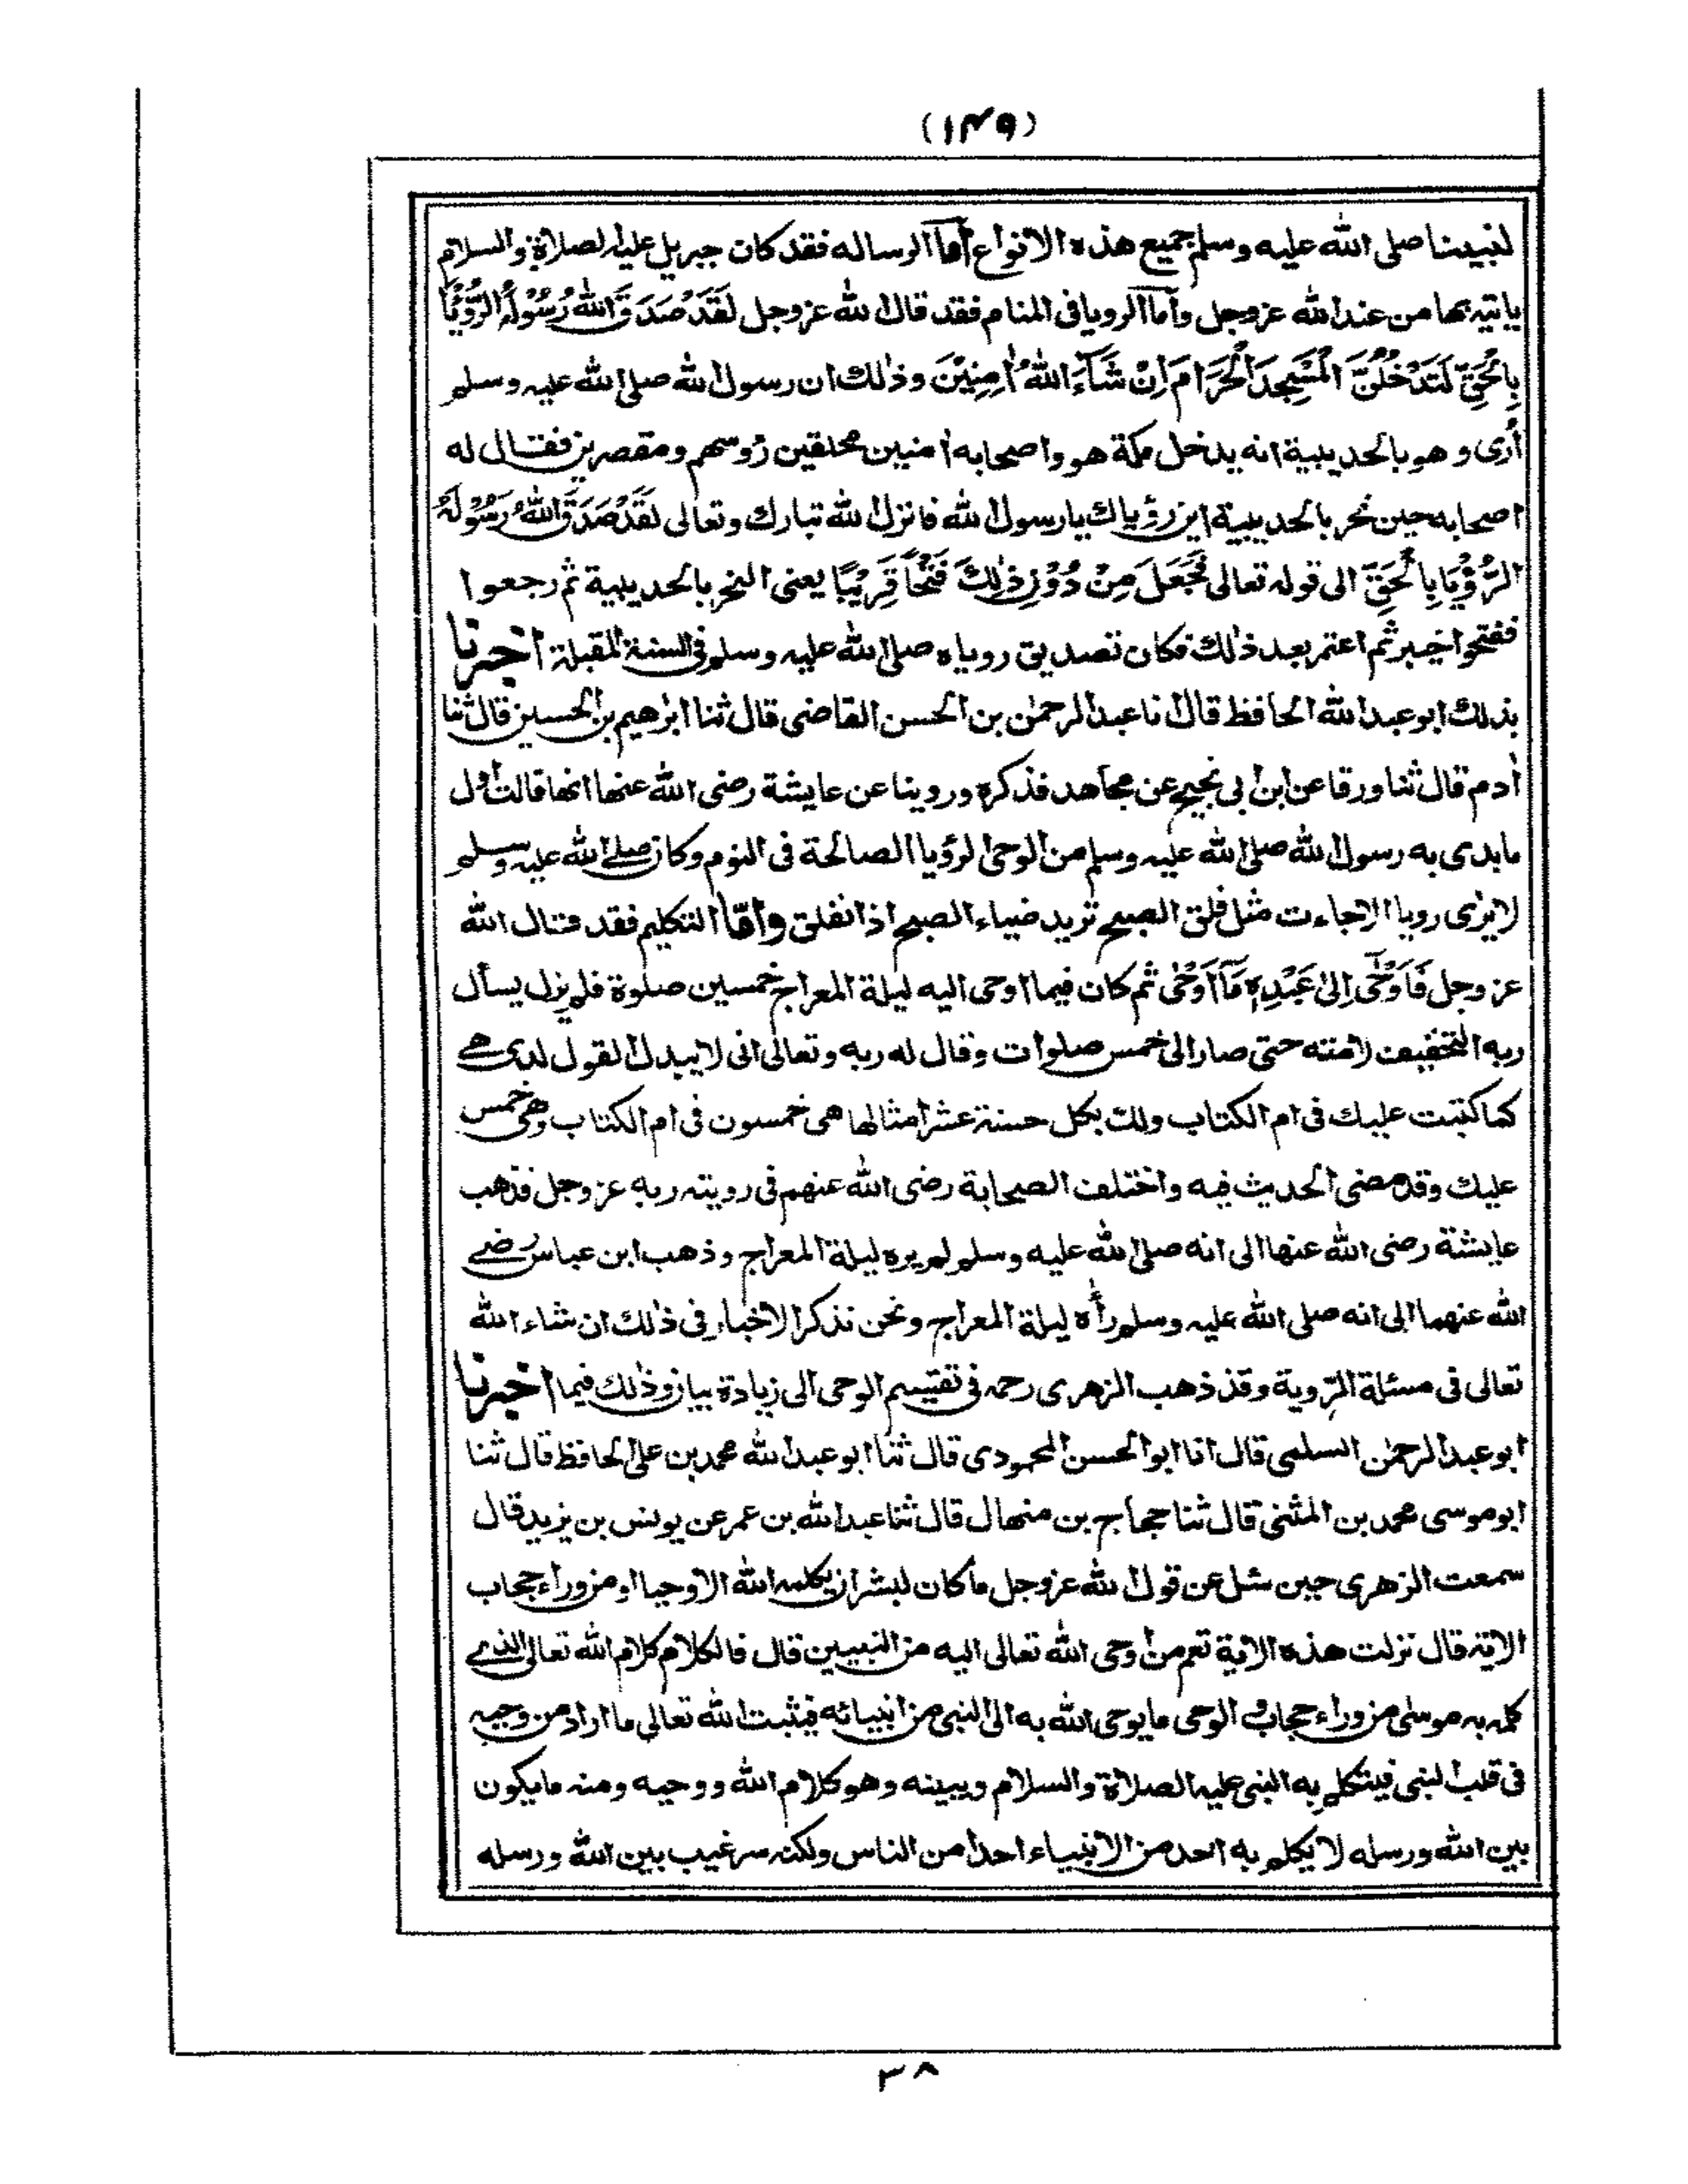 (١٤٥)
لنبينا صلى الله عليه وسلم جميع هذه الانواع أما الرساله فقد كان جبريل عليه الصلاة والسلام
ياتيه بها من عند الله عز وجل وأما الرويا فى المنام فقد قال الله عز وجل لَقَدْ صَدَقَ اللهُ رَسُوْلَهُ الرُّؤْيَا
بِالْحَقِّ لَتَدْخُلُنَّ الْمَسْجِدَ الْحَرَامَ اِنْ شَآءَ اللهُ اٰمِنِيْنَ وذلك ان رسول الله صلى الله عليه وسلم
أرى وهو بالحديبية انه يدخل مكة هو واصحابه اٰمنين محلقين رؤسهم ومقصرين فقال له
اصحابه حين نحر بالحديبية اين رؤياك يا رسول الله فانزل الله تبارك وتعالى لَقَدْ صَدَقَ اللهُ رَسُوْلَهُ
الرُّؤْيَا بِالْحَقِّ الى قوله تعالى فَجَعَلَ مِنْ دُوْنِ ذٰلِكَ فَتْحًا قَرِيْبًا يعنى النحر بالحديبية ثم رجعوا
ففتحوا خيبر ثم اعتمر بعد ذلك فكان تصديق روياه صلى الله عليه وسلم فى السنة المقبلة اخبرنا
بذلك ابو عبد الله الحافظ قال انا عبد الرحمٰن بن الحسن القاضى قال ثنا ابرٰهيم بن الحسين قال ثنا
اٰدم قال ثنا ورقا عن ابن ابى نجيح عن مجاهد فذكره وروينا عن عايشة رضى الله عنها انها قالت اول
ما بدى به رسول الله صلى الله عليه وسلم من الوحى الرؤيا الصالحة فى النوم وكان صلى الله عليه وسلم
لا يرٰى رويا الا جاءت مثل فلق الصبح تريد ضياء الصبح اذا انفلق وامّا التكليم فقد قال الله
عز وجل فَاَوْحٰٓى اِلٰى عَبْدِهٖ مَآ اَوْحٰى ثم كان فيما اوحى اليه ليلة المعراج خمسين صلوة فلم يزل يسأل
ربه التخفيف لامته حتى صار الى خمس صلوات وقال له ربه وتعالى انى لا يبدل القول لدى هى
كما كتبت عليك فى ام الكتاب ولك بكل حسنة عشر امثالها هى خمسون فى ام الكتاب وهى خمس
عليك وقد مضى الحديث فيه واختلف الصحابة رضى الله عنهم فى رويته ربه عز وجل فذهب
عايشة رضى الله عنها الى انه صلى الله عليه وسلم لم يره ليلة المعراج وذهب ابن عباس رضى
الله عنهما الى انه صلى الله عليه وسلم رأه ليلة المعراج ونحن نذكر الاخبار فى ذلك ان شاء الله
تعالى فى مسئلة الرّوية وقد ذهب الزهرى رحمه فى تقسيم الوحى الى زيادة بيان وذلك فيما اخبرنا
ابو عبد الرحمٰن السلمى قال انا ابو الحسن المحمودى قال ثنا ابو عبد الله محمد بن على الحافظ قال ثنا
ابو موسى محمد بن المثنى قال ثنا حجاج بن منهال قال ثنا عبد الله بن عمر عن يونس بن يزيد قال
سمعت الزهرى حين سئل عن قول الله عز وجل ما كان لبشر ان يكلمه الله الا وحيا او من وراء حجاب
الاية قال نزلت هذه الاية تعم من اوحى الله تعالى اليه من النبيين قال فالكلام كلام الله تعالى الذى
كلمه به موسٰى من وراء حجاب والوحى ما يوحى الله به الى النبى من انبيائه فيثبت الله تعالى ما اراد من وحيه
فى قلب النبى فيتكلم به النبى عليه الصلاة والسلام ويبينه وهو كلام الله ووحيه ومنه ما يكون
بين الله ورسله لا يكلم به احد من الانبياء احدا من الناس ولكنه سر غيب بين الله ورسله
٣٨